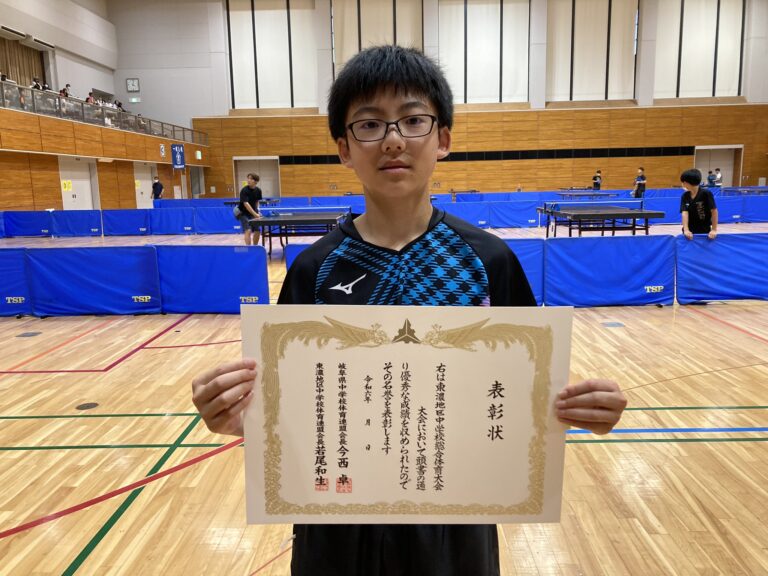 表彰状
右は東濃地区中学校総合体育大会
大会において頭書の通
り優秀な成績を収められたので
その名誉を表彰します
令和六年　月　日
岐阜県中学校体育連盟会長 今西 卓
東濃地区中学校体育連盟会長 若尾和生
TSP
TSP
TSP
TSP
TSP